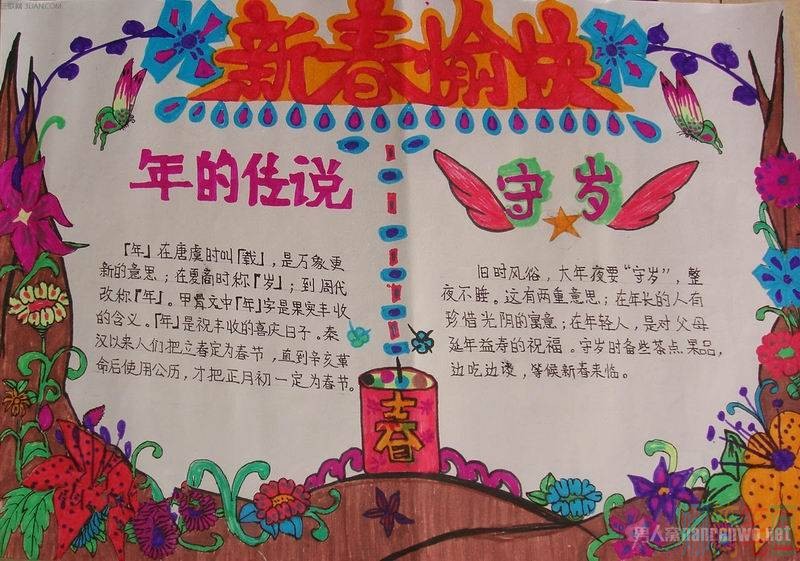 三联网 3LIAN.COM
新春愉快
年的传说
『年』在唐虞时叫『载』，是万象更
新的意思；在夏商时称『岁』；到周代
改称『年』。甲骨文中『年』字是果实丰收
的含义。『年』是祝丰收的喜庆日子。秦
汉以来人们把立春定为春节，直到辛亥革
命后使用公历，才把正月初一定为春节。
守岁
旧时风俗，大年夜要“守岁”，整
夜不睡。这有两重意思；在年长的人有
珍惜光阴的寓意；在年轻人，是对父母
延年益寿的祝福。守岁时备些茶点果品，
边吃边谈，等候新春来临。
春
男人窝nanrenwo.net